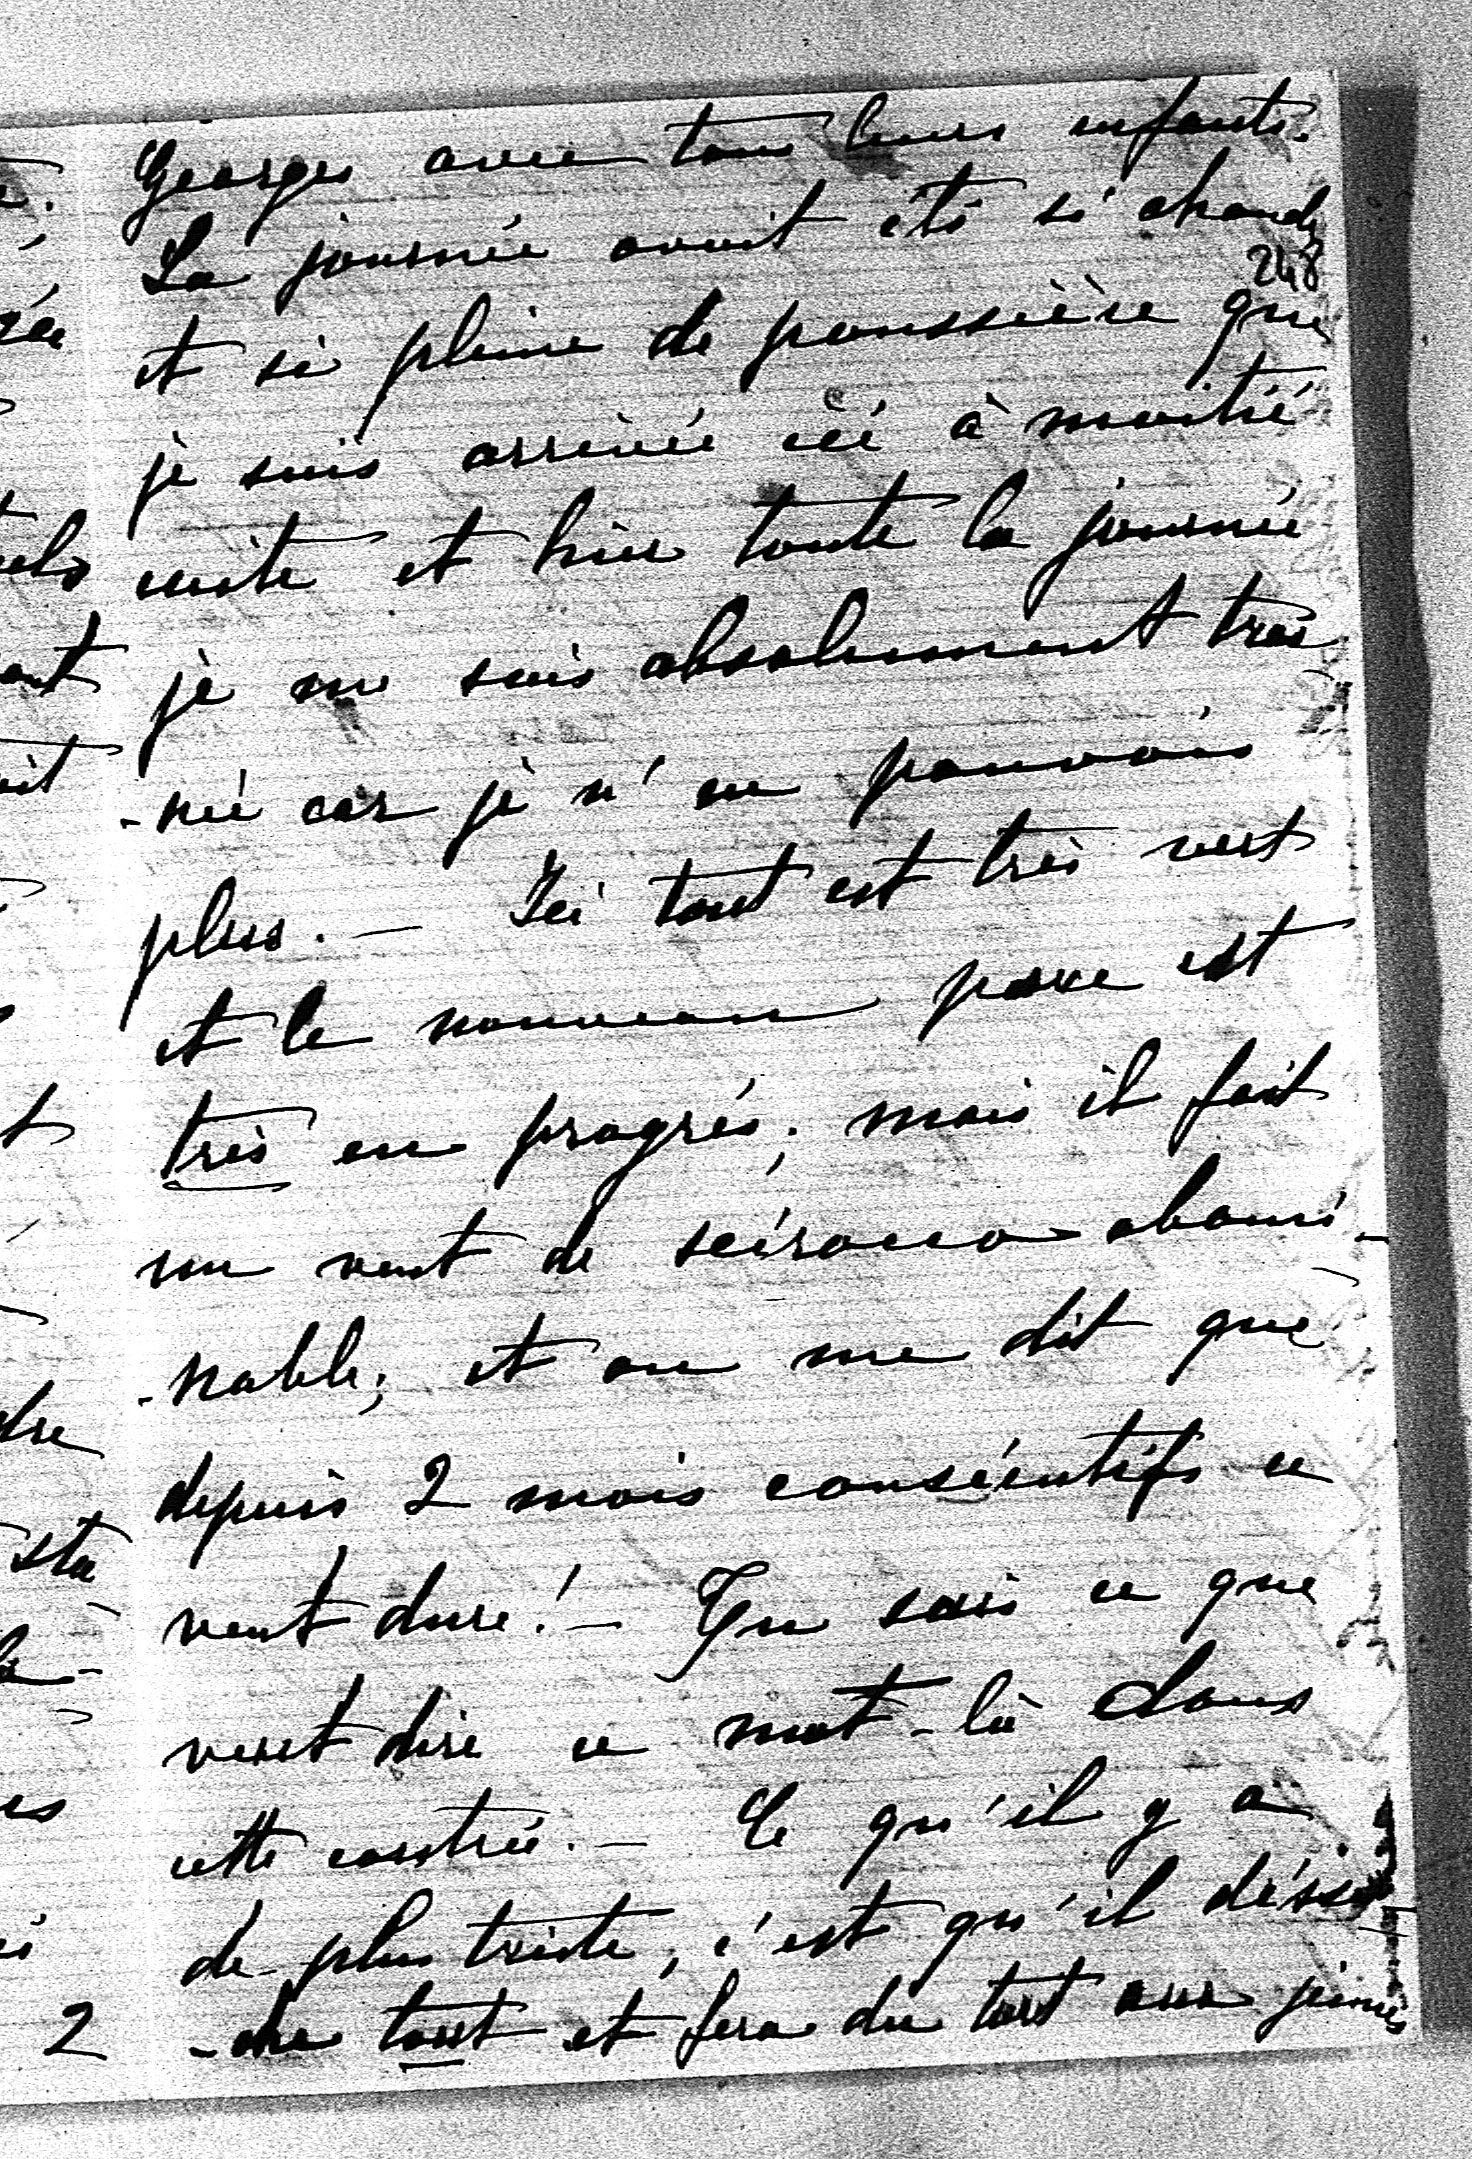 Georges avec tous leurs enfants.
La journée avait été si chaude
248
et si pleine de poussière que
je suis arrivée ici à moitié
cuite et hier toute la journée
je me suis absolument trai
-née car je n'en pouvais
plus. — Ici tout est très vert
et le nouveau parc est
très en progrés; mais il fait
un vent de scirocco abomi-
-nable; et on me dit que
depuis 2 mois consécutifs ce
vent dure! — Tu sais ce que
veut dire ce mot-là dans
cette contrée. — Ce qu'il y a
de plus triste, c'est qu'il déssè
-che tout et fera du tort aux jeunes
2